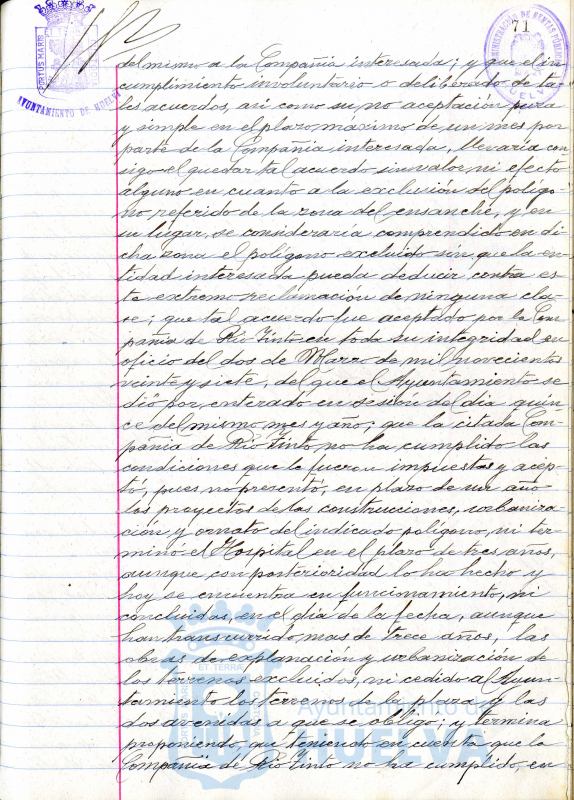 71
PORTUS MARIS
AYUNTAMIENTO DE HUELVA
ADMINISTRACION DE RENTAS PUBLICAS
HUELVA
del mismo a la Compañia interesada; y que el in-
cumplimiento involuntario o deliberado de ta-
les acuerdos, asi como su no aceptación pura
y simple en el plazo máximo de un mes por
parte de la Compañia interesada, llevaría con-
sigo el quedar tal acuerdo sin valor ni efecto
alguno en cuanto a la exclusión del polígo-
no referido de la zona del ensanche, y en
su lugar, se consideraría comprendido en di-
cha zona el polígono excluido sin que la en-
tidad interesada pueda deducir contra es-
te extremo reclamación de ninguna cla-
se; que tal acuerdo fue aceptado por la Com-
pañia de Rio Tinto en toda su integridad en
oficio del dos de Marzo de mil novecientos
veinte y siete, del que el Ayuntamiento se
dió por enterado en sesión del dia quin-
ce del mismo mes y año; que la citada Com-
pañia de Rio Tinto no ha cumplido las
condiciones que le fueron impuestas y acep-
tó, pues no presentó, en plazo de un año
los proyectos de las construcciones, urbaniza-
ción y ornato del indicado polígono, ni ter-
minó el Hospital en el plazo de tres años,
aunque con posterioridad lo ha hecho y
hoy se encuentra en funcionamiento, ni
concluidas, en el día de la fecha, aunque
han transcurrido mas de trece años, las
obras de explanación y urbanización de
los terrenos excluidos, ni cedido al Ayun-
tamiento los terrenos de la plaza y las
dos avenidas a que se obligó; y termina
proponiendo, que teniendo en cuenta que la
Compañia de Rio Tinto no ha cumplido, en
Ayuntamiento de
HUELVA